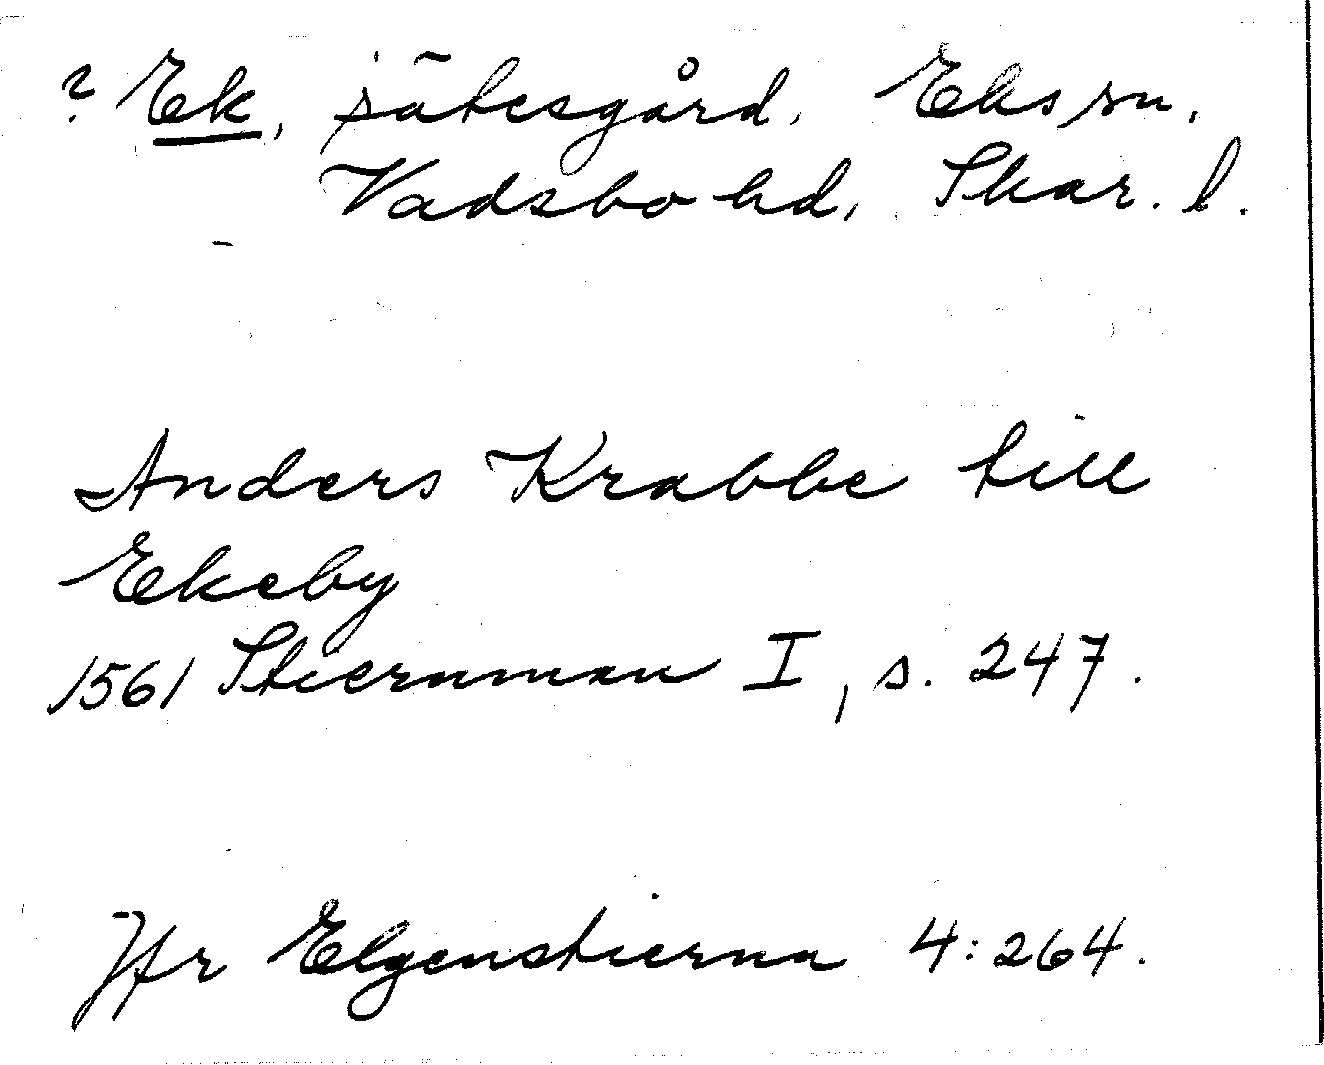 ? Ek, sätesgård, Eks sn.
Vadsbo hd, Skar. l.
Anders Krabbe till
Ekeby
1561 Stiernman I, s. 247.
Jfr Elgenstierna 4:264.